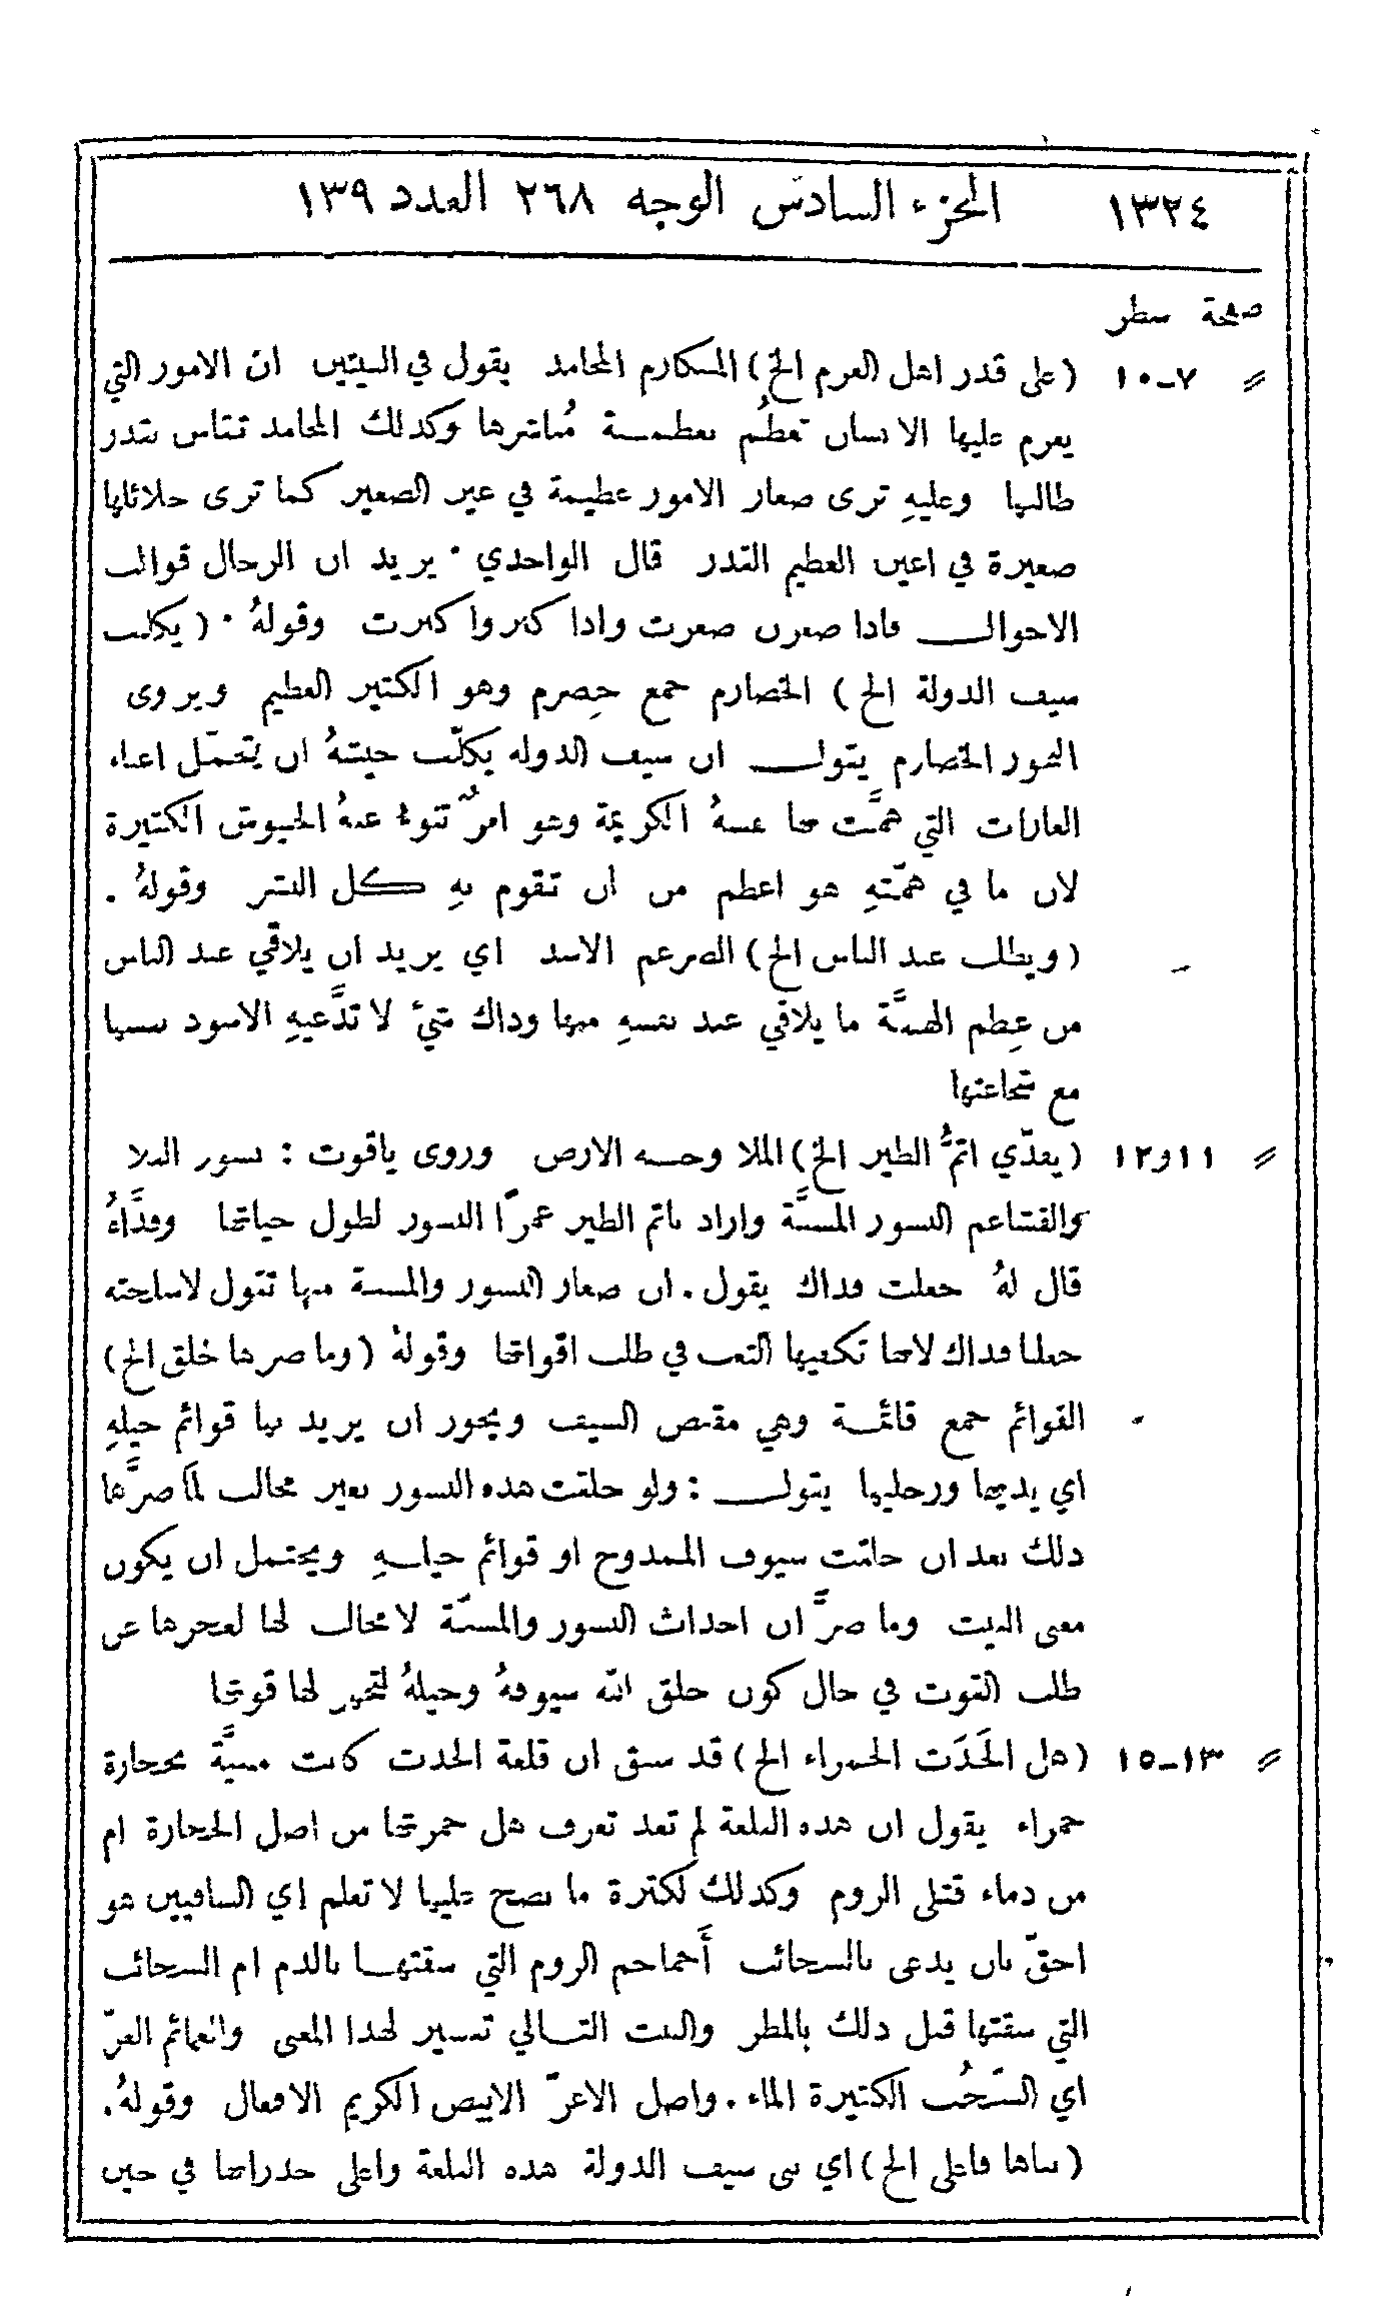 ١٣٢٤ الجزء السادس الوجه ٢٦٨ العدد ١٣٩
صفحة سطر
〃 ٧-١٠ (على قدر اهل العزم الخ) المكارم المحامد يقول في البيتين ان الامور التي
يعزم عليها الانسان تعظُم بعظمة مُباشرها وكذلك المحامد تقاس بقدر
طالبها وعليهِ ترى صغار الامور عظيمة في عين الصغير كما ترى جلائلها
صغيرة في اعين العظيم القدر قال الواحدي ٠ يريد ان الرجال قوالب
الاحوال فاذا صغرن صغرت واذا كبروا كبرت وقولهُ ٠ (يكلف
سيف الدولة الخ) الخضارم جمع خِضرم وهو الكثير العظيم ويروى
البحور الخضارم يقول ان سيف الدوله يكلّف جيشهُ ان يتحمّل اعباء
الغارات التي همَّت بها نفسهُ الكريمة وهو امرٌ تنوءُ عنهُ الجيوش الكثيرة
لان ما في همّتهِ هو اعظم من ان تقوم بهِ كل البشر وقولهُ .
(ويطلب عند الناس الخ) الضرغم الاسد اي يريد ان يلاقي عند الناس
من عِظم الهمَّة ما يلاقي عند نفسهِ منها وذاك شيء لا تدَّعيهِ الاسود نفسها
مع شجاعتها
〃 ١١و١٢ (يفدّي اتمُّ الطير الخ) الملا وجه الارض وروى ياقوت : نسور الملا
والقشاعم النسور المسنَّة واراد باتم الطير عمرًا النسور لطول حياتها وفدَّاهُ
قال لهُ جعلت فداك يقول . ان صغار النسور والمسنة منها تقول لاسلحته
جعلنا فداك لانها تكفيها التعب في طلب اقواتها وقولهُ (وما ضرها خلق الخ)
القوائم جمع قائمة وهي مقبض السيف ويجوز ان يريد بها قوائم خيلهِ
اي يديها ورجليها يقول : ولو خلقت هذه النسور بغير مخالب لمَا ضرَّها
ذلك بعد ان خلقت سيوف الممدوح او قوائم خيلهِ ويحتمل ان يكون
معنى البيت وما ضرَّ ان احداث النسور والمسنّة لا مخالب لها لعجزها عن
طلب القوت في حال كون خلق الله سيوفهُ وخيلهُ لتجهز لها قوتها
〃 ١٣-١٥ (هل الحَدَث الحمراء الخ) قد سبق ان قلعة الحدث كانت مبنيَّة بحجارة
حمراء يقول ان هذه القلعة لم تعد تعرف هل حمرتها من اصل الحجارة ام
من دماء قتلى الروم وكذلك لكثرة ما نضح عليها لا تعلم اي الساقيين هو
احقّ بان يدعى بالسحائب أَجماجم الروم التي سقتها بالدم ام السحائب
التي سقتها قبل ذلك بالمطر والبيت التالي تفسير لهذا المعنى والغمائم الغرّ
اي السُّحُب الكثيرة الماء . واصل الاغرّ الابيض الكريم الافعال وقولهُ .
(بناها فاعلى الخ) اي بنى سيف الدولة هذه القلعة واعلى جدرانها في حين